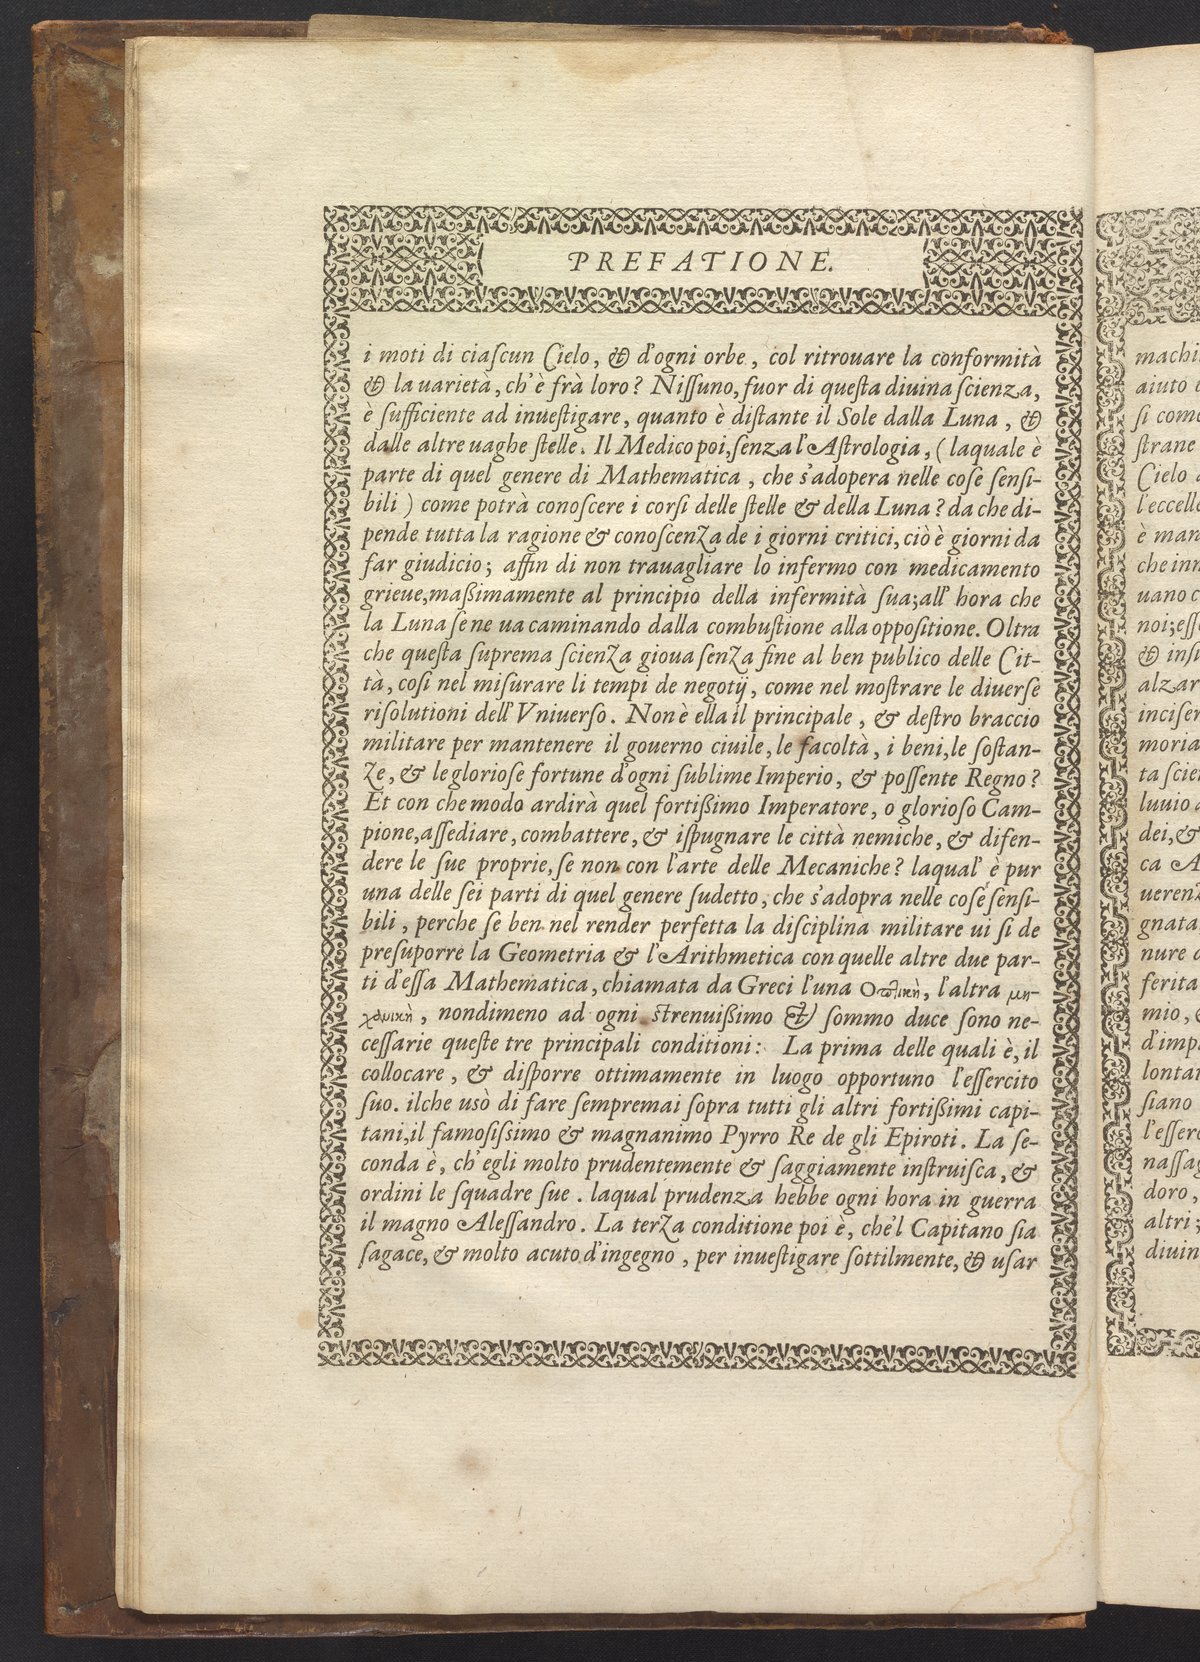 PREFATIONE.
i moti di ciaſcun Cielo, & d'ogni orbe, col ritrouare la conformità
& la uarietà, ch'è frà loro? Niſſuno, fuor di queſta diuina ſcienza,
è ſufficiente ad inueſtigare, quanto è diſtante il Sole dalla Luna, &
dalle altre uaghe ſtelle. Il Medico poi, ſenza l'Aſtrologia, (laquale è
parte di quel genere di Mathematica, che s'adopera nelle coſe ſenſi-
bili) come potrà conoſcere i corſi delle ſtelle & della Luna? da che di-
pende tutta la ragione & conoſcenza de i giorni critici, ciò è giorni da
far giudicio; affin di non trauagliare lo infermo con medicamento
grieue, maßimamente al principio della infermità ſua; all' hora che
la Luna ſe ne ua caminando dalla combuſtione alla oppoſitione. Oltra
che queſta ſuprema ſcienza gioua ſenza fine al ben publico delle Cit-
tà, coſi nel miſurare li tempi de negotij, come nel moſtrare le diuerſe
riſolutioni dell'Vniuerſo. Non è ella il principale, & deſtro braccio
militare per mantenere il gouerno ciuile, le facoltà, i beni, le ſoſtan-
ze, & le glorioſe fortune d'ogni ſublime Imperio, & poſſente Regno?
Et con che modo ardirà quel fortißimo Imperatore, o glorioſo Cam-
pione, aſſediare, combattere, & iſpugnare le città nemiche, & difen-
dere le ſue proprie, ſe non con l'arte delle Mecaniche? laqual' è pur
una delle ſei parti di quel genere ſudetto, che s'adopra nelle coſe ſenſi-
bili, perche ſe ben nel render perfetta la diſciplina militare ui ſi de
preſuporre la Geometria & l'Arithmetica con quelle altre due par-
ti d'eſſa Mathematica, chiamata da Greci l'una Οπτικὴ, l'altra μη-
χανικὴ, nondimeno ad ogni ſtrenuißimo & ſommo duce ſono ne-
ceſſarie queſte tre principali conditioni: La prima delle quali è, il
collocare, & diſporre ottimamente in luogo opportuno l'eſſercito
ſuo. ilche usò di fare ſempremai ſopra tutti gli altri fortißimi capi-
tani, il famoſiſsimo & magnanimo Pyrro Re de gli Epiroti. La ſe-
conda è, ch'egli molto prudentemente & ſaggiamente inſtruiſca, &
ordini le ſquadre ſue. laqual prudenza hebbe ogni hora in guerra
il magno Aleſſandro. La terza conditione poi è, che'l Capitano ſia
ſagace, & molto acuto d'ingegno, per inueſtigare ſottilmente, & uſar
machi
aiuto
ſi come
ſtrane
Cielo
l'eccelle
è man
che inn
uano c
noi; eſſ
& inſi
alzar
inciſer
moria
ta ſcien
luuio
dei, &
ca A
uerenz
gnata
nure
ferita
mio,
d'imp
lontan
ſiano
l'eſſer
naſſag
doro,
altri;
diuin